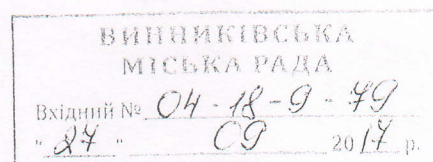 ВИННИКІВСЬКА
МІСЬКА РАДА
Вхідний № 04-18-9-79
"27" 09 2017 р.